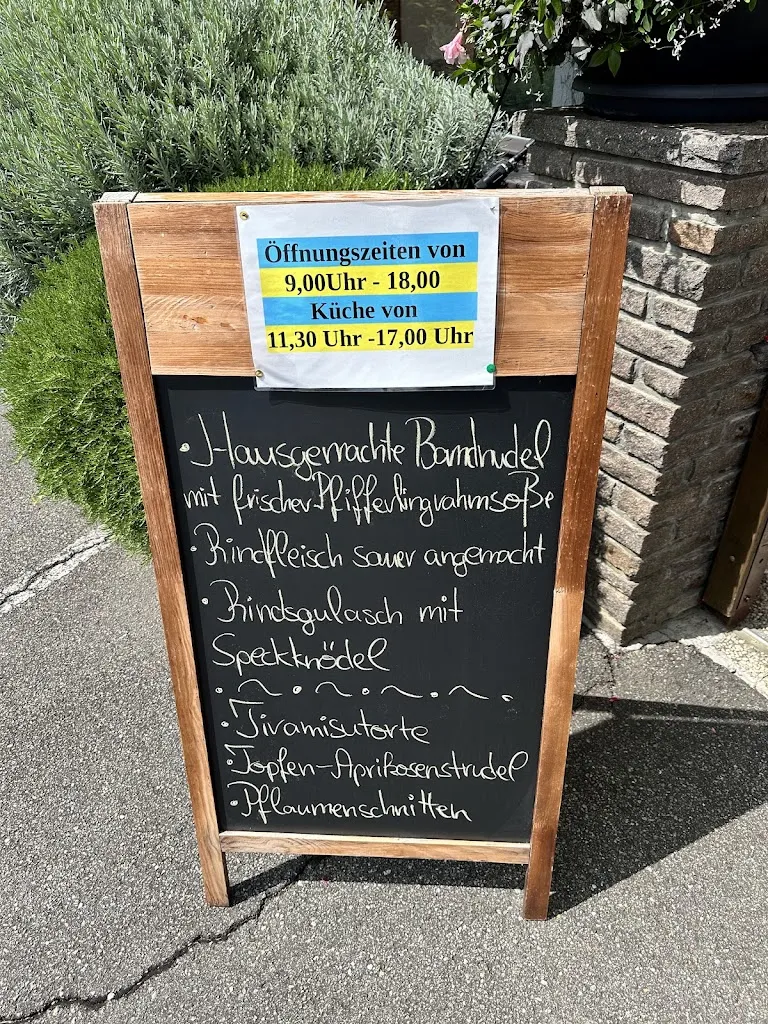 Öffnungszeiten von
9,00Uhr - 18,00
Küche von
11,30 Uhr -17,00 Uhr
• Hausgemachte Bandnudel
mit frischer Pfifferlingrahmsoße
• Rindfleisch sauer angemacht
• Rindsgulasch mit
Speckknödel
• ~ • ~ • ~ • ~ •
• Tiramisutorte
• Topfen-Aprikosenstrudel
• Pflaumenschnitten